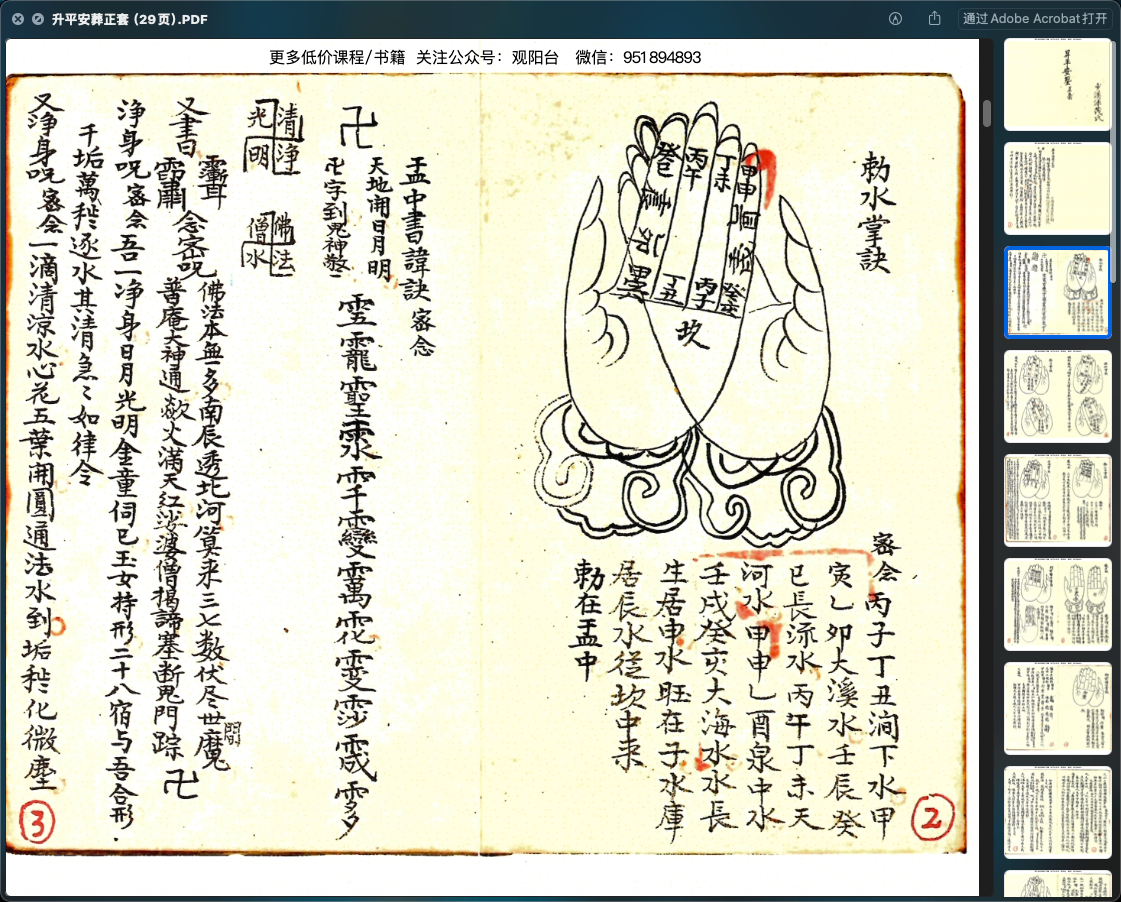 升平安葬正套 (29页).PDF
通过Adobe Acrobat打开
更多低价课程/书籍 关注公众号：观阳台 微信：951894893
勅水掌訣
丙午
丁未
甲申
丁丑
丙子
癸亥
坎
密念丙子丁丑澗下水甲
寅乚卯大溪水壬辰癸
巳長流水丙午丁未天
河水甲申乚酉泉中水
壬戌癸亥大海水水長
生居申水旺在子水庫
居辰水從坎中来
勅在盂中
2
盂中書諱訣密念
天地開日月明
卍字到鬼神驚
卍
清淨
光明
佛法
僧水
又書
念密咒
佛法本無多南辰透北河算来三七数伏尽世間魔
普庵大神通焱火滿天紅娑婆僧揭諦塞断鬼門踪
卍
淨身咒密念吾一净身日月光明金童伺已玉女持形二十八宿与吾合形
千垢萬秽逐水其清急〻如律令
又淨身咒密念一滴清涼水心花五葉開圓通法水到垢秽化微塵
3